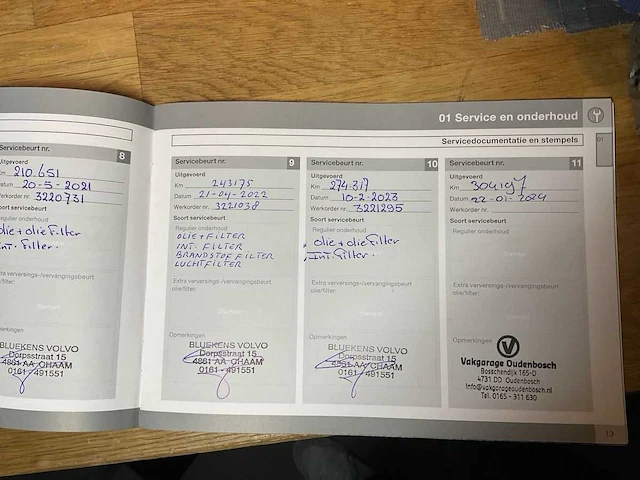 01 Service en onderhoud
01
Servicedocumentatie en stempels
8
Uitgevoerd
Km 210.651
Datum 20-5-2021
Werkorder nr. 3220731
Soort servicebeurt
Regulier onderhoud
olie + olie Filter
Int. Filter.
Extra verversings-/vervangingsbeurt
olie/filter:
Opmerkingen
BLUEKENS VOLVO
Dorpsstraat 15
4861 AA CHAAM
0161 - 491551
Servicebeurt nr. 9
Uitgevoerd
Km 243175
Datum 21-04-2022
Werkorder nr. 3221038
Soort servicebeurt
Regulier onderhoud
OLIE + FILTER
INT. FILTER
BRANDSTOF FILTER
LUCHTFILTER
Extra verversings-/vervangingsbeurt
olie/filter:
Opmerkingen
BLUEKENS VOLVO
Dorpsstraat 15
4861 AA CHAAM
0161 - 491551
Servicebeurt nr. 10
Uitgevoerd
Km 274.317
Datum 10-2-2023
Werkorder nr. 3221295
Soort servicebeurt
Regulier onderhoud
olie + olie Filter
Int. Filter.
Extra verversings-/vervangingsbeurt
olie/filter:
Opmerkingen
BLUEKENS VOLVO
Dorpsstraat 15
4861 AA CHAAM
0161 - 491551
Servicebeurt nr. 11
Uitgevoerd
Km 304197
Datum 22-01-2024
Werkorder nr.
Soort servicebeurt
Regulier onderhoud
Extra verversings-/vervangingsbeurt
olie/filter:
Opmerkingen
Vakgarage Oudenbosch
Bosschendijk 165-D
4731 DD Oudenbosch
info@vakgarageoudenbosch.nl
Tel. 0165 - 311 630
13